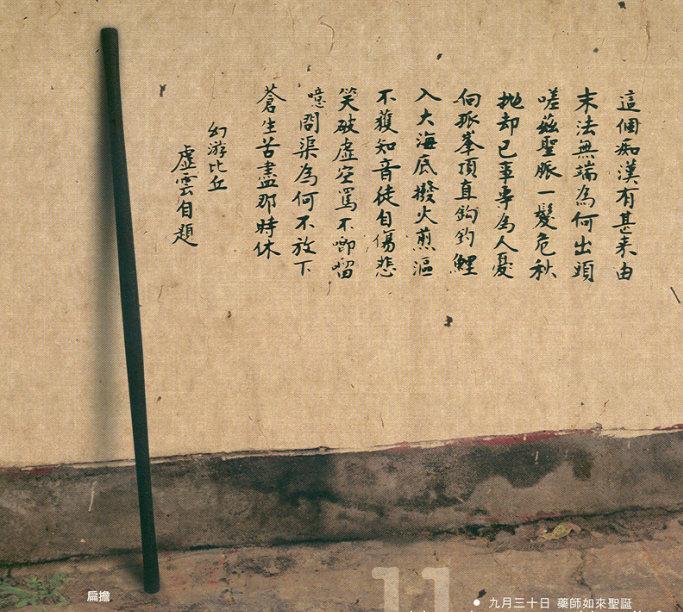 這個痴漢有甚來由
末法無端為何出頭
嗟茲聖脈一髮危秋
拋却己事專為人憂
向孤峯頂直鈎釣鯉
入大海底撥火煎漚
不獲知音徒自傷悲
笑破虛空罵不唧𠺕
噫問渠為何不放下
蒼生苦盡那時休
幻游比丘
虛雲自題
扁擔
11
● 九月三十日 藥師如來聖誕